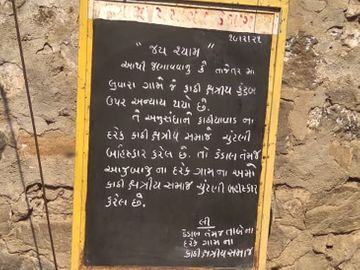 " જય શ્યામ "
આથી જણાવવાનું કે તાજેતર મા
લુવારા ગામે જે કાઠી ક્ષત્રીય કુટુંબ
ઉપર અન્યાય થયો છે.
તે અનુસંધાને કાઠીયાવાડ ના
દરેક કાઠી ક્ષત્રીય સમાજે ચુંટણી
બહિસ્કાર કરેલ છે. તો કંડાળ તેમજ
આજુબાજુ ના દરેક ગામ ના અમો
કાઠી ક્ષત્રીય સમાજ ચુંટણી બહીસ્કાર
કરેલ છે.
લી
કંડાળ તેમજ તાબેના
દરેક ગામ ના
કાઠી ક્ષત્રીય સમાજ